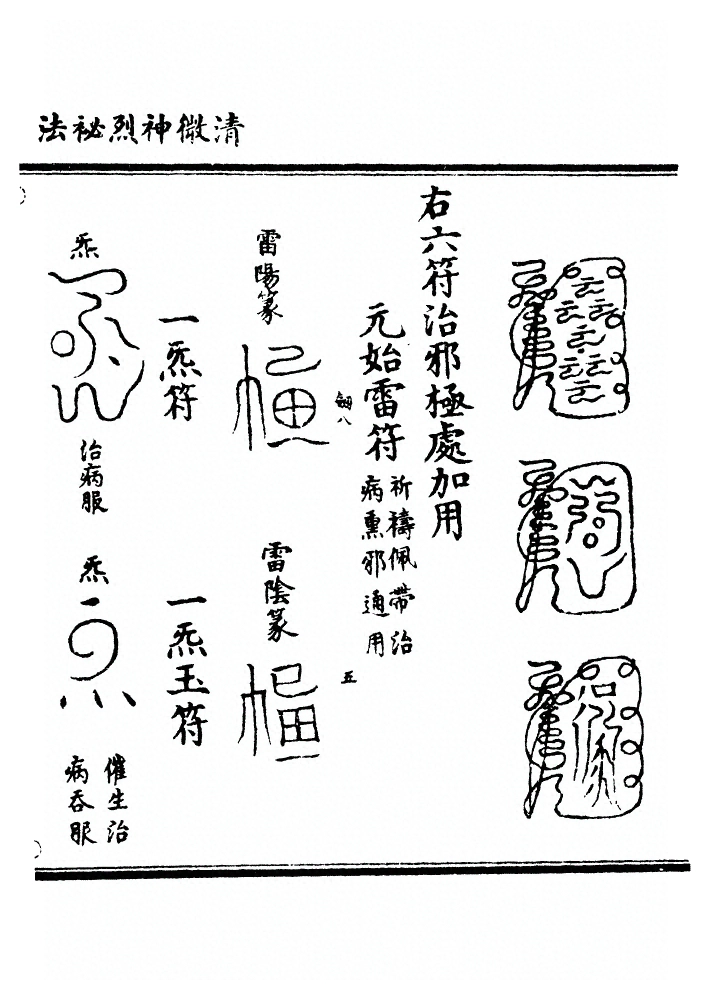 清微神烈祕法
右六符治邪極處加用
元始雷符
祈禱佩帶治
病熏邪通用
五
雷陽篆
雷陰篆
一炁符
一炁玉符
炁
治病服
炁
催生治
病吞服